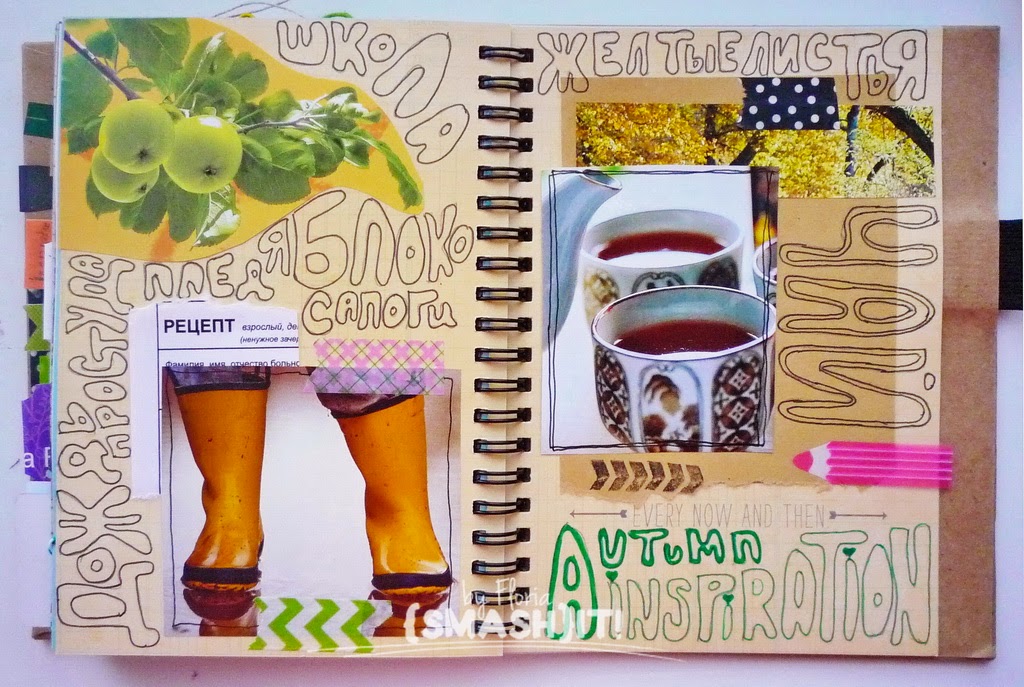 ШКОЛА
ЯБЛОКО
ПЛЕД
САПОГИ
ПРОСТУДА
ДОЖДЬ
РЕЦЕПТ взрослый, де
(ненужное заче
Фамилия, имя, отчество больно
ЖЕЛТЫЕ ЛИСТЬЯ
ЧАЙ
EVERY NOW AND THEN
AUTUMN
INSPIRATION
by Floria
{SMASH}IT!